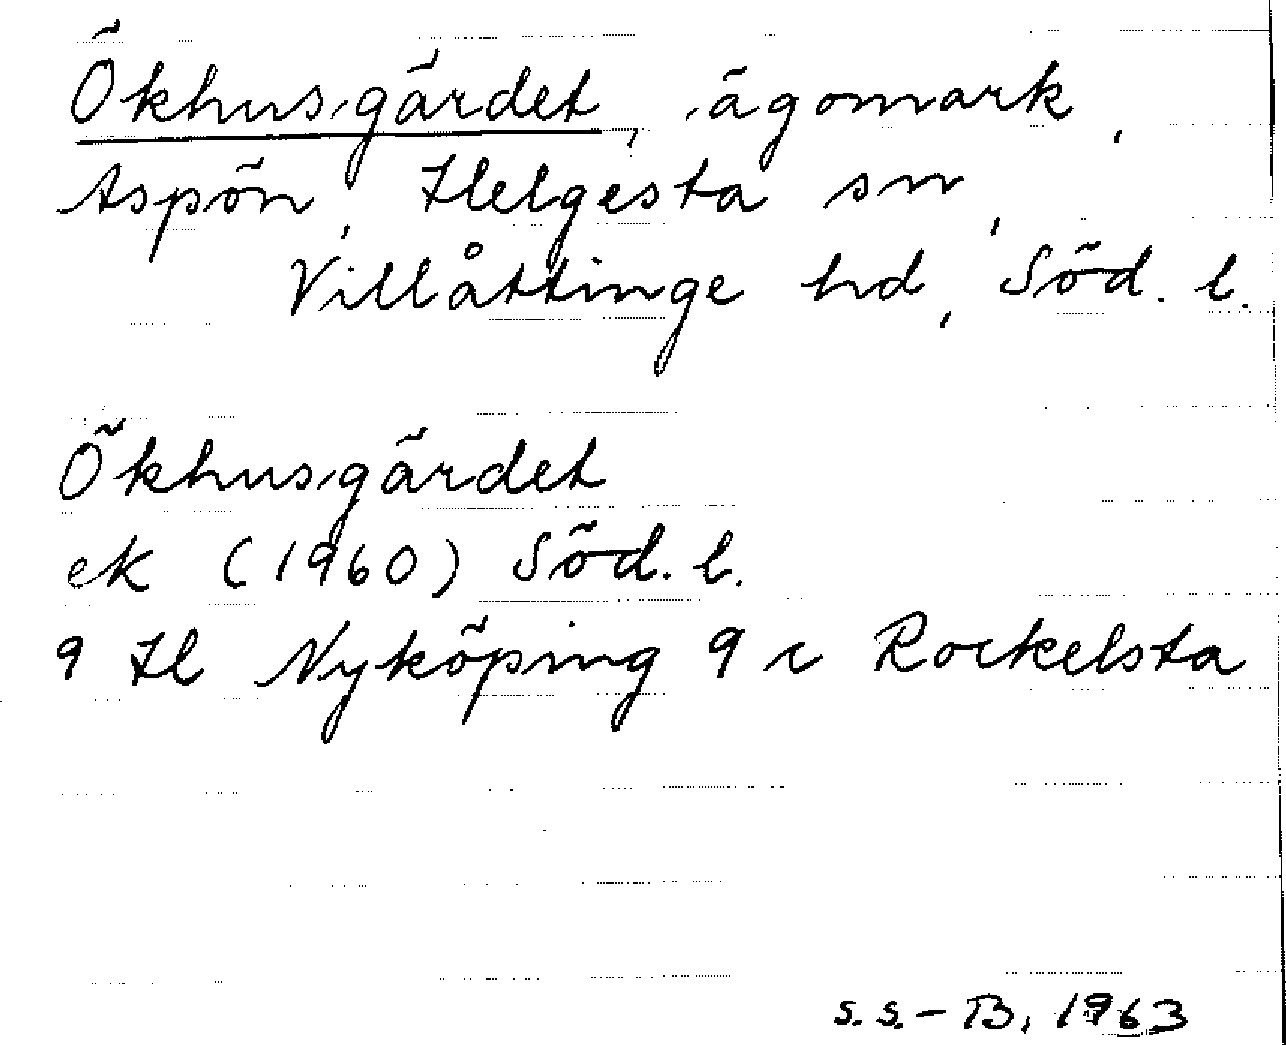 Ökhusgärdet, ägomark,
Aspön, Helgesta sn,
Villåttinge hd, Söd. l.
Ökhusgärdet
ek (1960) Söd. l.
9 H Nyköping 9 c Rockelsta
S.S.-B. 1963